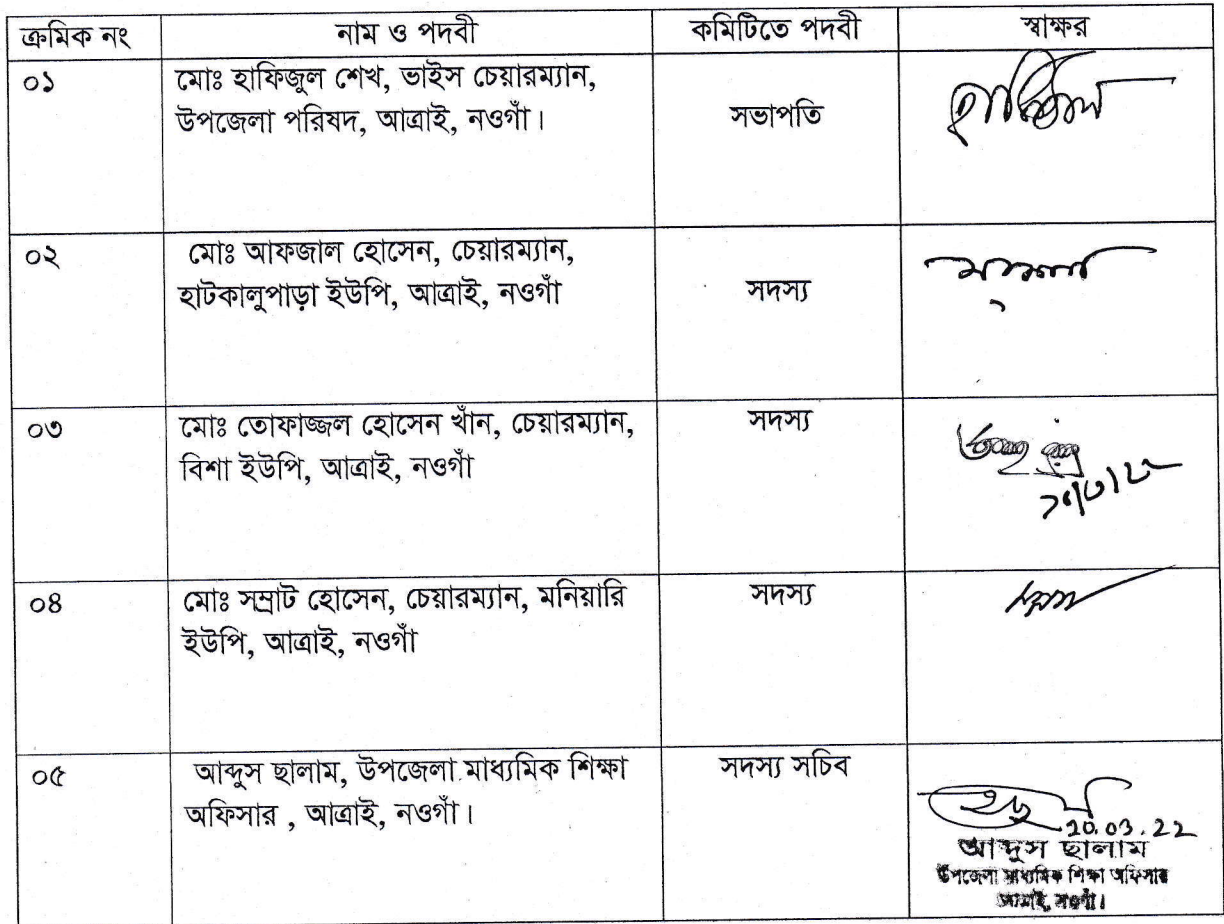 ক্রমিক নং নাম ও পদবী কমিটিতে পদবী স্বাক্ষর
০১ মোঃ হাফিজুল শেখ, ভাইস চেয়ারম্যান,
উপজেলা পরিষদ, আত্রাই, নওগাঁ। সভাপতি
০২ মোঃ আফজাল হোসেন, চেয়ারম্যান,
হাটকালুপাড়া ইউপি, আত্রাই, নওগাঁ সদস্য
০৩ মোঃ তোফাজ্জল হোসেন খাঁন, চেয়ারম্যান, সদস্য
বিশা ইউপি, আত্রাই, নওগাঁ
০৪ মোঃ সম্রাট হোসেন, চেয়ারম্যান, মনিয়ারি সদস্য
ইউপি, আত্রাই, নওগাঁ
০৫ আব্দুস ছালাম, উপজেলা মাধ্যমিক শিক্ষা সদস্য সচিব
অফিসার , আত্রাই, নওগাঁ।
20.03.22
আব্দুস ছালাম
উপজেলা মাধ্যমিক শিক্ষা অফিসার
আত্রাই, নওগাঁ।